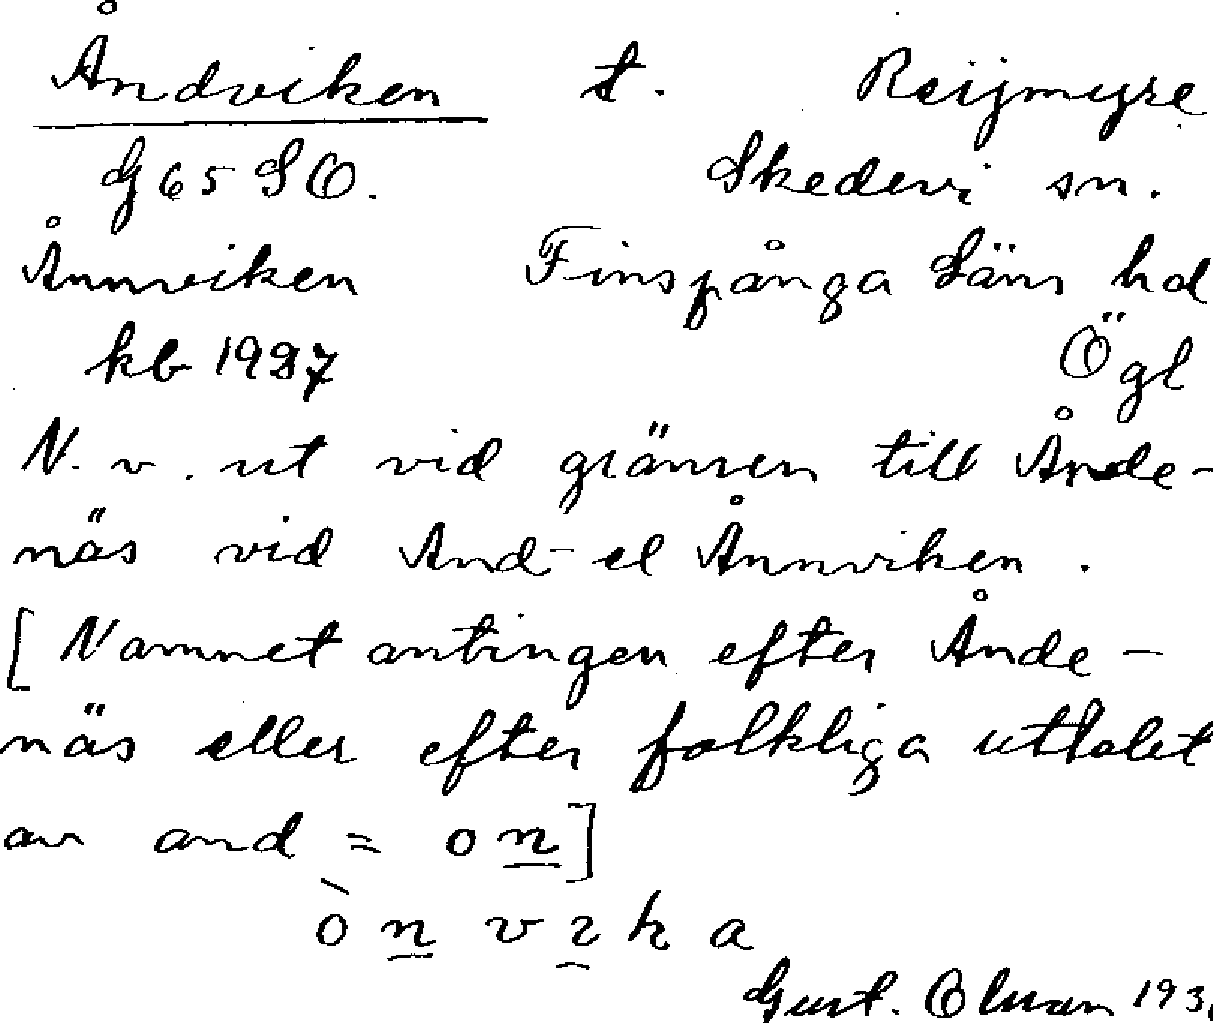 Åndviken t. Reijmyre
G 65 SO. Skedevi sn.
Ånnviken Finspånga Läns hd
kb 1927 Ögl
N. v. ut vid gränsen till Ånde-
näs vid And- el Ånnviken.
[Namnet antingen efter Ånde-
näs eller efter folkliga uttalet
av and = on]
ò n v i k a
Gust. 193